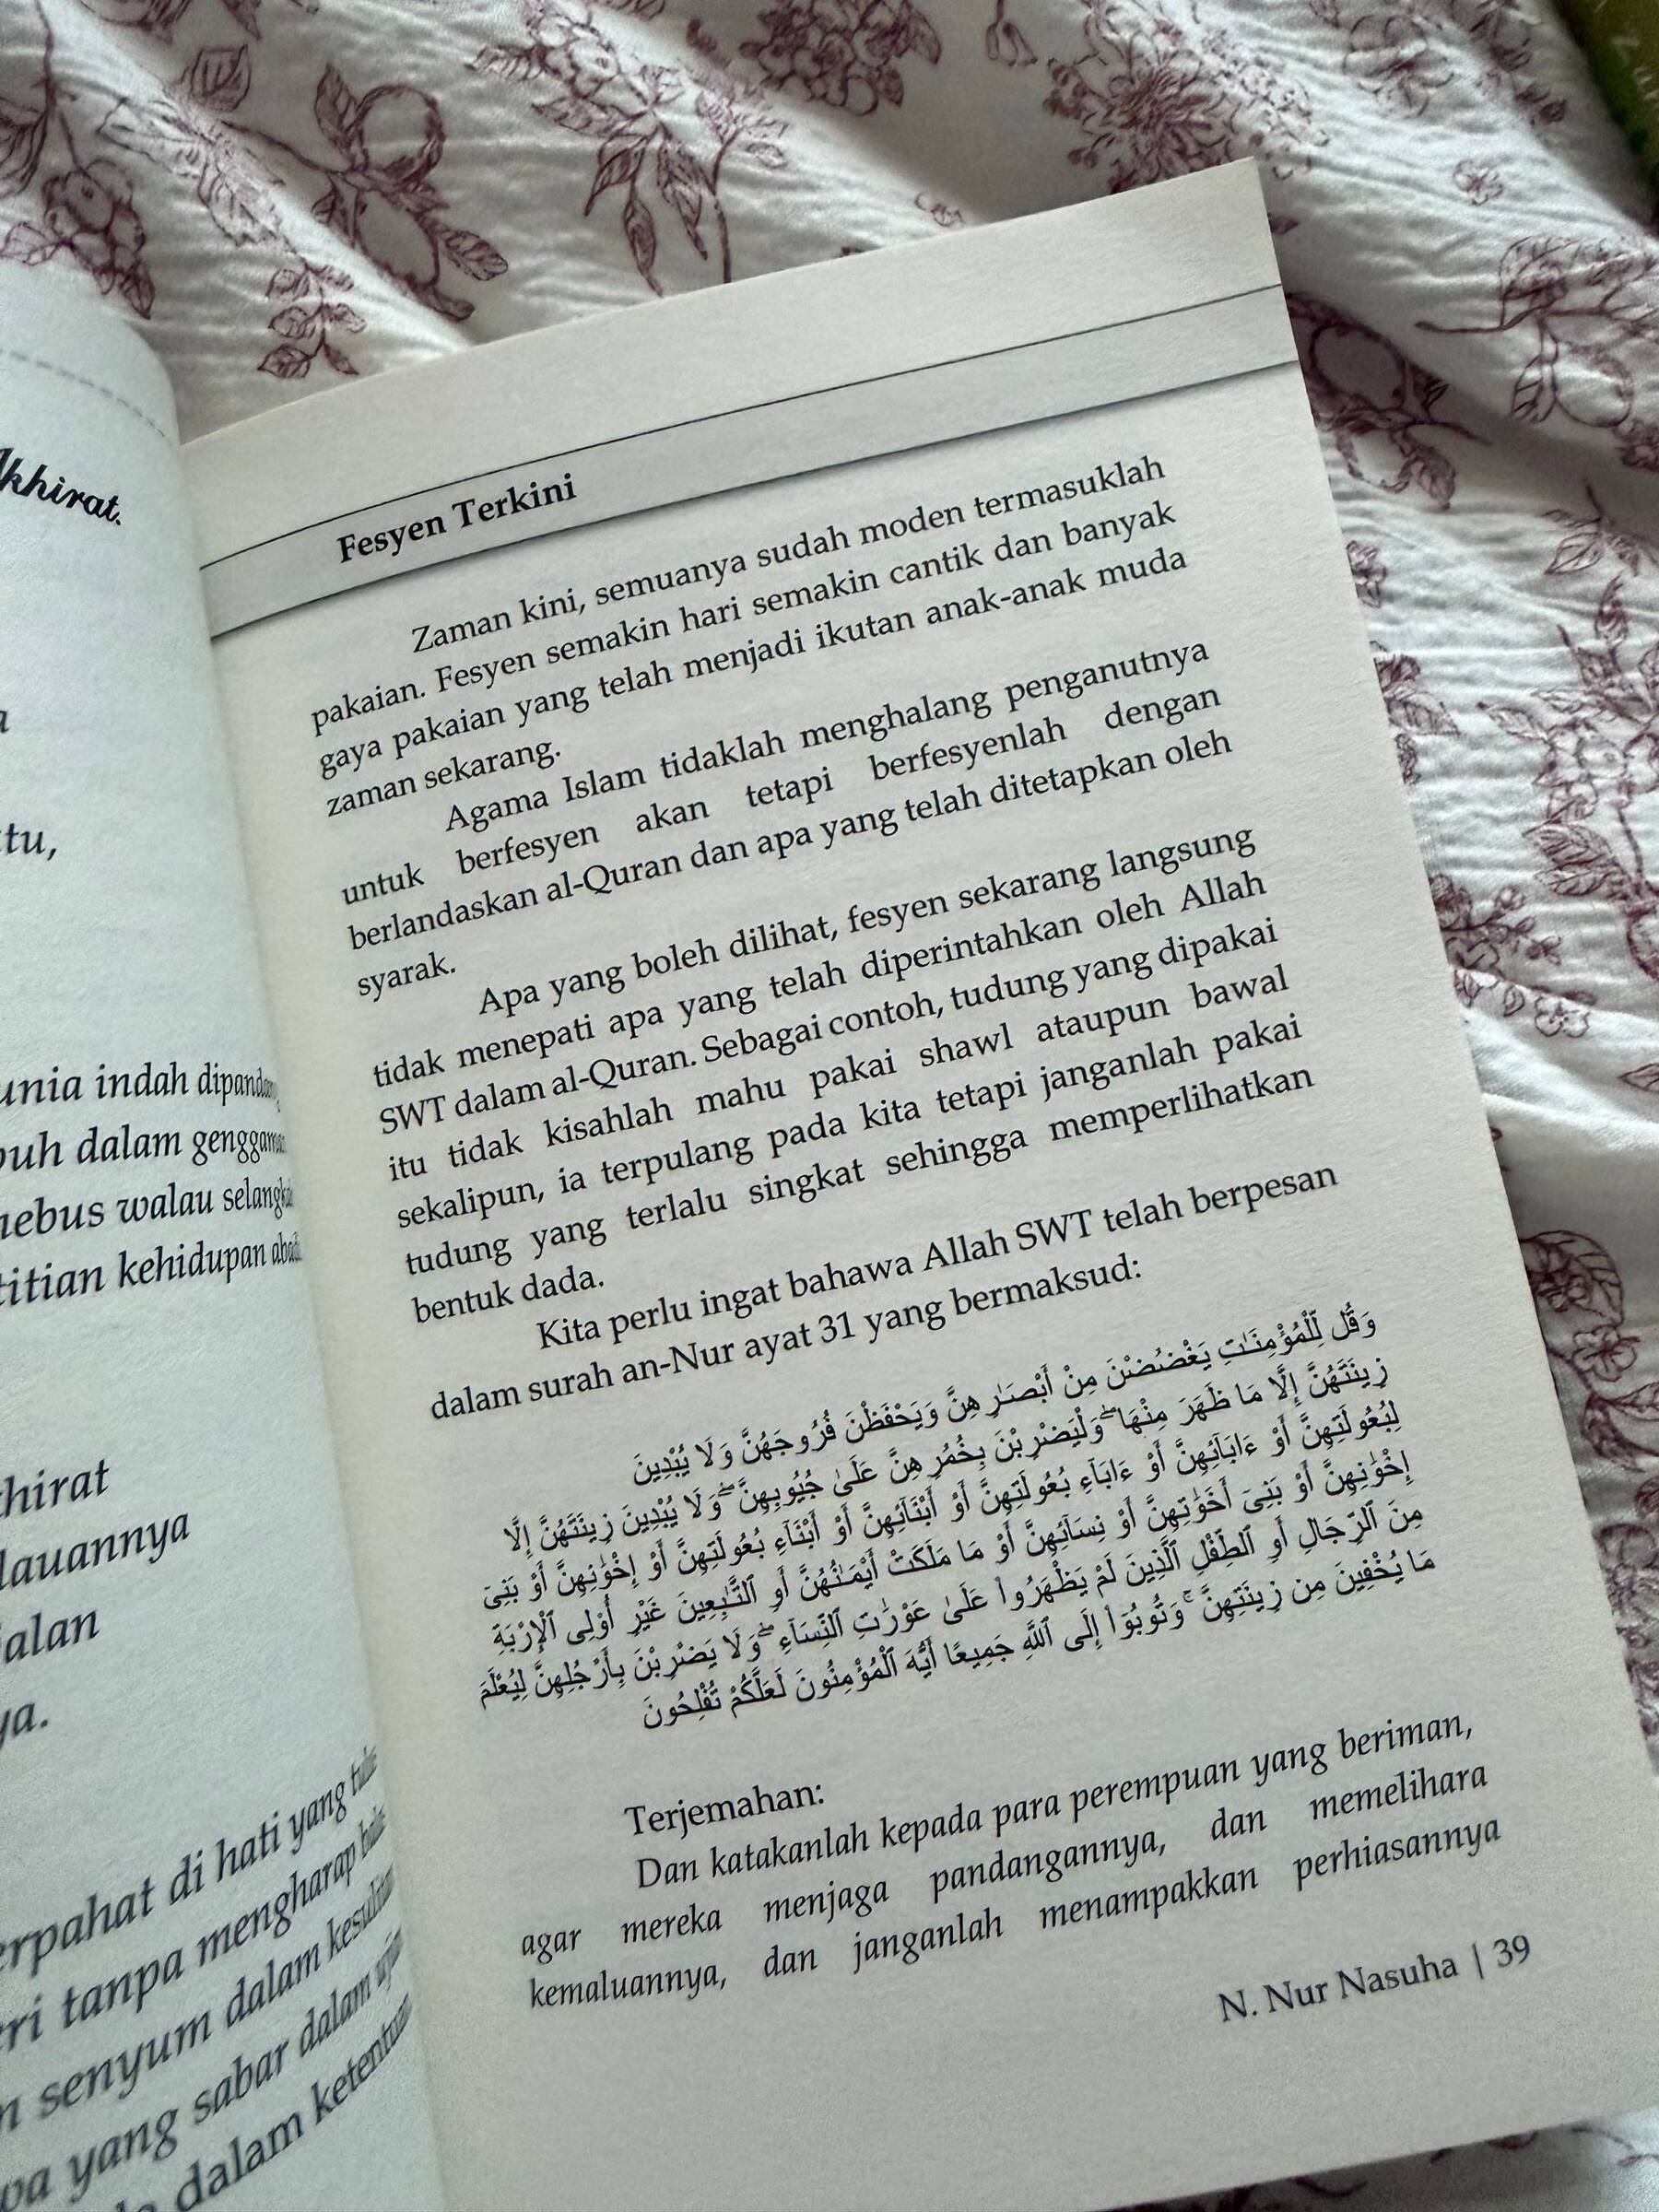 Akhirat.
tu,
indah dipandang
dalam
walau
titian kehidupan
jalan
di hati yang
tanpa mengharap
senyum dalam
yang sabar dalam
dalam
Fesyen Terkini
Zaman kini, semuanya sudah moden termasuklah
pakaian. Fesyen semakin hari semakin cantik dan banyak
gaya pakaian yang telah menjadi ikutan anak-anak muda
zaman sekarang.
Agama Islam tidaklah menghalang penganutnya
untuk berfesyen akan tetapi berfesyenlah dengan
berlandaskan al-Quran dan apa yang telah ditetapkan oleh
syarak.
Apa yang boleh dilihat, fesyen sekarang langsung
tidak menepati apa yang telah diperintahkan oleh Allah
SWT dalam al-Quran. Sebagai contoh, tudung yang dipakai
itu tidak kisahlah mahu pakai shawl ataupun bawal
sekalipun, ia terpulang pada kita tetapi janganlah pakai
tudung yang terlalu singkat sehingga memperlihatkan
bentuk dada.
Kita perlu ingat bahawa Allah SWT telah berpesan
dalam surah an-Nur ayat 31 yang bermaksud:
وَقُل لِّلْمُؤْمِنَـٰتِ يَغْضُضْنَ مِنْ أَبْصَـٰرِهِنَّ وَيَحْفَظْنَ فُرُوجَهُنَّ وَلَا يُبْدِينَ
زِينَتَهُنَّ إِلَّا مَا ظَهَرَ مِنْهَا ۖ وَلْيَضْرِبْنَ بِخُمُرِهِنَّ عَلَىٰ جُيُوبِهِنَّ ۖ وَلَا يُبْدِينَ زِينَتَهُنَّ إِلَّا
لِبُعُولَتِهِنَّ أَوْ ءَابَآئِهِنَّ أَوْ ءَابَآءِ بُعُولَتِهِنَّ أَوْ أَبْنَآئِهِنَّ أَوْ أَبْنَآءِ بُعُولَتِهِنَّ أَوْ إِخْوَٰنِهِنَّ أَوْ بَنِىٓ
إِخْوَٰنِهِنَّ أَوْ بَنِىٓ أَخَوَٰتِهِنَّ أَوْ نِسَآئِهِنَّ أَوْ مَا مَلَكَتْ أَيْمَـٰنُهُنَّ أَوِ ٱلتَّـٰبِعِينَ غَيْرِ أُو۟لِى ٱلْإِرْبَةِ
مِنَ ٱلرِّجَالِ أَوِ ٱلطِّفْلِ ٱلَّذِينَ لَمْ يَظْهَرُوا۟ عَلَىٰ عَوْرَٰتِ ٱلنِّسَآءِ ۖ وَلَا يَضْرِبْنَ بِأَرْجُلِهِنَّ لِيُعْلَمَ
مَا يُخْفِينَ مِن زِينَتِهِنَّ ۚ وَتُوبُوٓا۟ إِلَى ٱللَّهِ جَمِيعًا أَيُّهَ ٱلْمُؤْمِنُونَ لَعَلَّكُمْ تُفْلِحُونَ
Terjemahan:
Dan katakanlah kepada para perempuan yang beriman,
agar mereka menjaga pandangannya, dan memelihara
kemaluannya, dan janganlah menampakkan perhiasannya
N. Nur Nasuha | 39